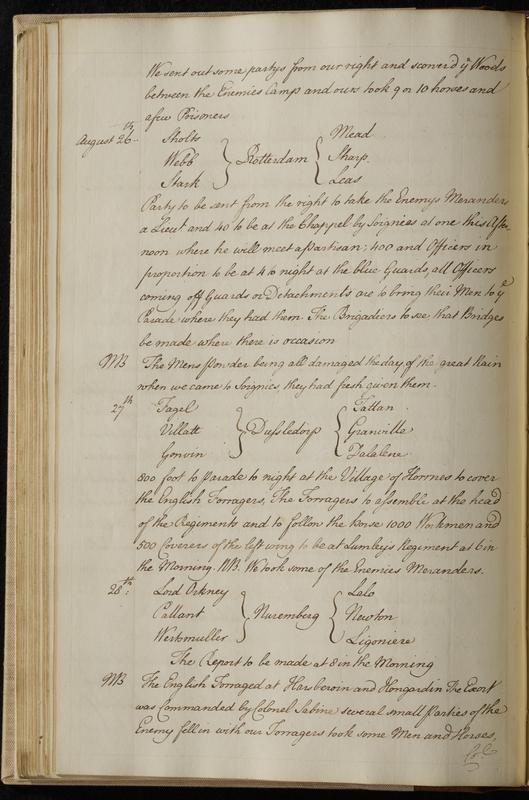 We sent out some partys from our right and scower'd yͤ Woods
between the Enemies Camp and ours took 9 or 10 horses and
a few Prisoners
August 26th Sholts Mead
Webb } Rotterdam { Sharp
Stark Leas
Party to be sent from the right to take the Enemys Meranders
a Lieut and 40 to be at the Chappel by Soignies at one this After
noon where he will meet a Partisan: 400 and Officers in
proportion to be at 4 to night at the blue Guards, all Officers
coming off Guards or Detachments are to bring their Men to yͤ
Parade where they had them. The Brigadiers to see, that Bridges
be made where there is occasion
NB The Mens Powder being all damaged the day of the great Rain
when we came to Soignies, they had fresh given them.
27th Fagel Tattan
Villatt } Dussledorp { Granville
Gonvin Palalene
800 foot to Parade to night at the Village of Horrues to cover
the English Forragers, The Forragers to assemble at the head
of the Regiments and to follow the Horse 1000 Workmen and
500 Coverers of the left wing to be at Lumley's Regiment at 6 in
the Morning. NB. We took some of the Enemies Meranders.
28th: Lord Orkney Lalo
Callant } Nuremberg { Newton
Wertmuller Ligoniere
The Report to be made at 8 in the Morning
NB The English Forraged at Harsberoin and Hongardin The Escort
was Commanded by Colonel Sabine several small Parties of the
Enemy fell in with our Forragers took some Men and Horses,